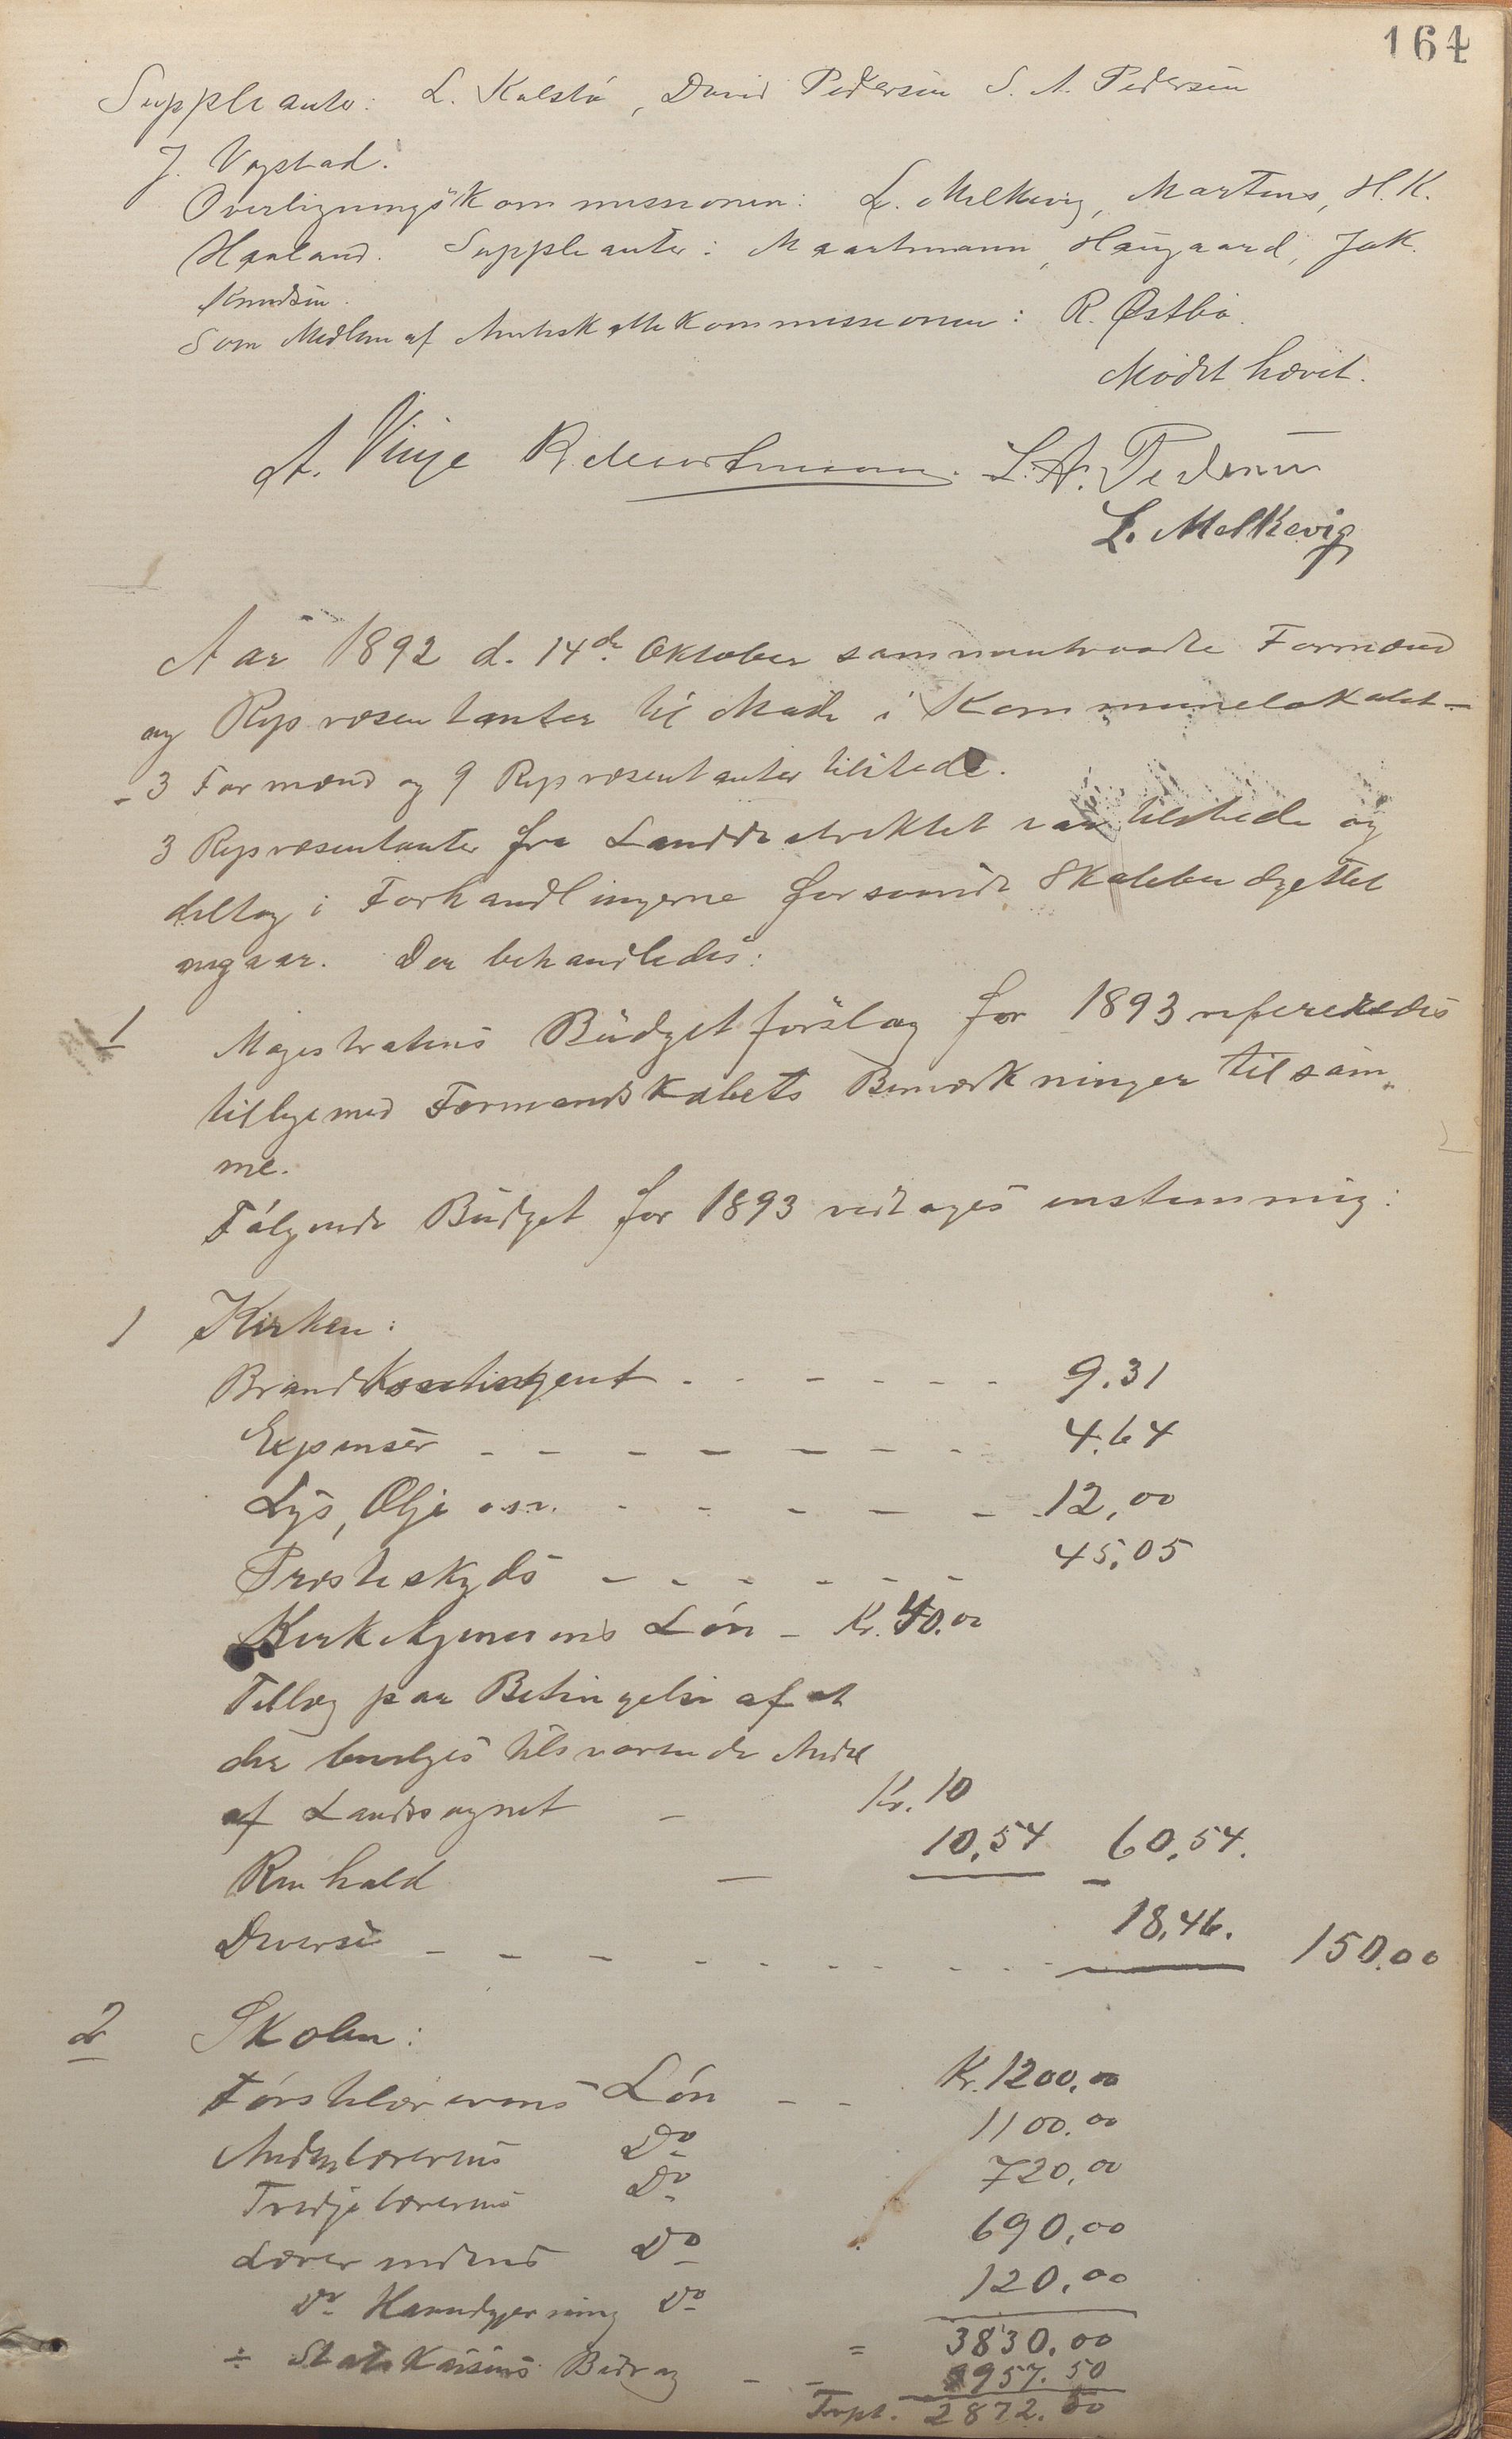 164
Suppleanter: L. Kalstø, David Pedersen S. A. Pedersen
J. Vogstad.
Overligningskommissionen: L. Melkevig, Martens, H. K.
Haaland. Suppleanter: Maartmann, Haugaard, Jak.
Knudsen.
Som Medlem af Amtsskattekommissionen: R. Østbø.
Mødet hævet.
A. Vinje R. Maartmann. S. A. Pedersen
L. Melkevig
Aar 1892 d. 14de Oktober sammentraadte Formænd
og Repræsentanter til Møde i Kommunelokalet –
– 3 Formænd og 9 Repræsentanter tilstede.
3 Repræsentanter fra Landdistriktet var tilstede og
deltog i Forhandlingerne forsaavidt Skolebudgettet
angaar. Der behandledes:
1 Magistratens Budgetforslag for 1893 refereredes
tilligemed Formandskabets Bemærkninger til sam-
me.
Følgende Budget for 1893 vedtages enstemmig:
1 Kirken:
Brandkontingent 9.31
Expenser 4.64
Lys, Olje osv. 12,00
Presteskyds 45,05
Kirketjenerens Løn – Kr. 40.00
Tillæg paa Betingelse af at
der bevilges tilsvarende Andel
af Landsognet – Kr. 10
Renhold – 10,54 60,54.
Diverse 18,46. 150.00
2 Skolen:
Førstelærerens Løn Kr. 1200,00
Andenlærerens Do 1100.00
Tredjelærerens Do 720,00
Lærerindens Do 690,00
Do Haandgjerning Do 120.00
= 3830.00
÷ Statskassens Bidrag 957.50
Trspt. 2872.50